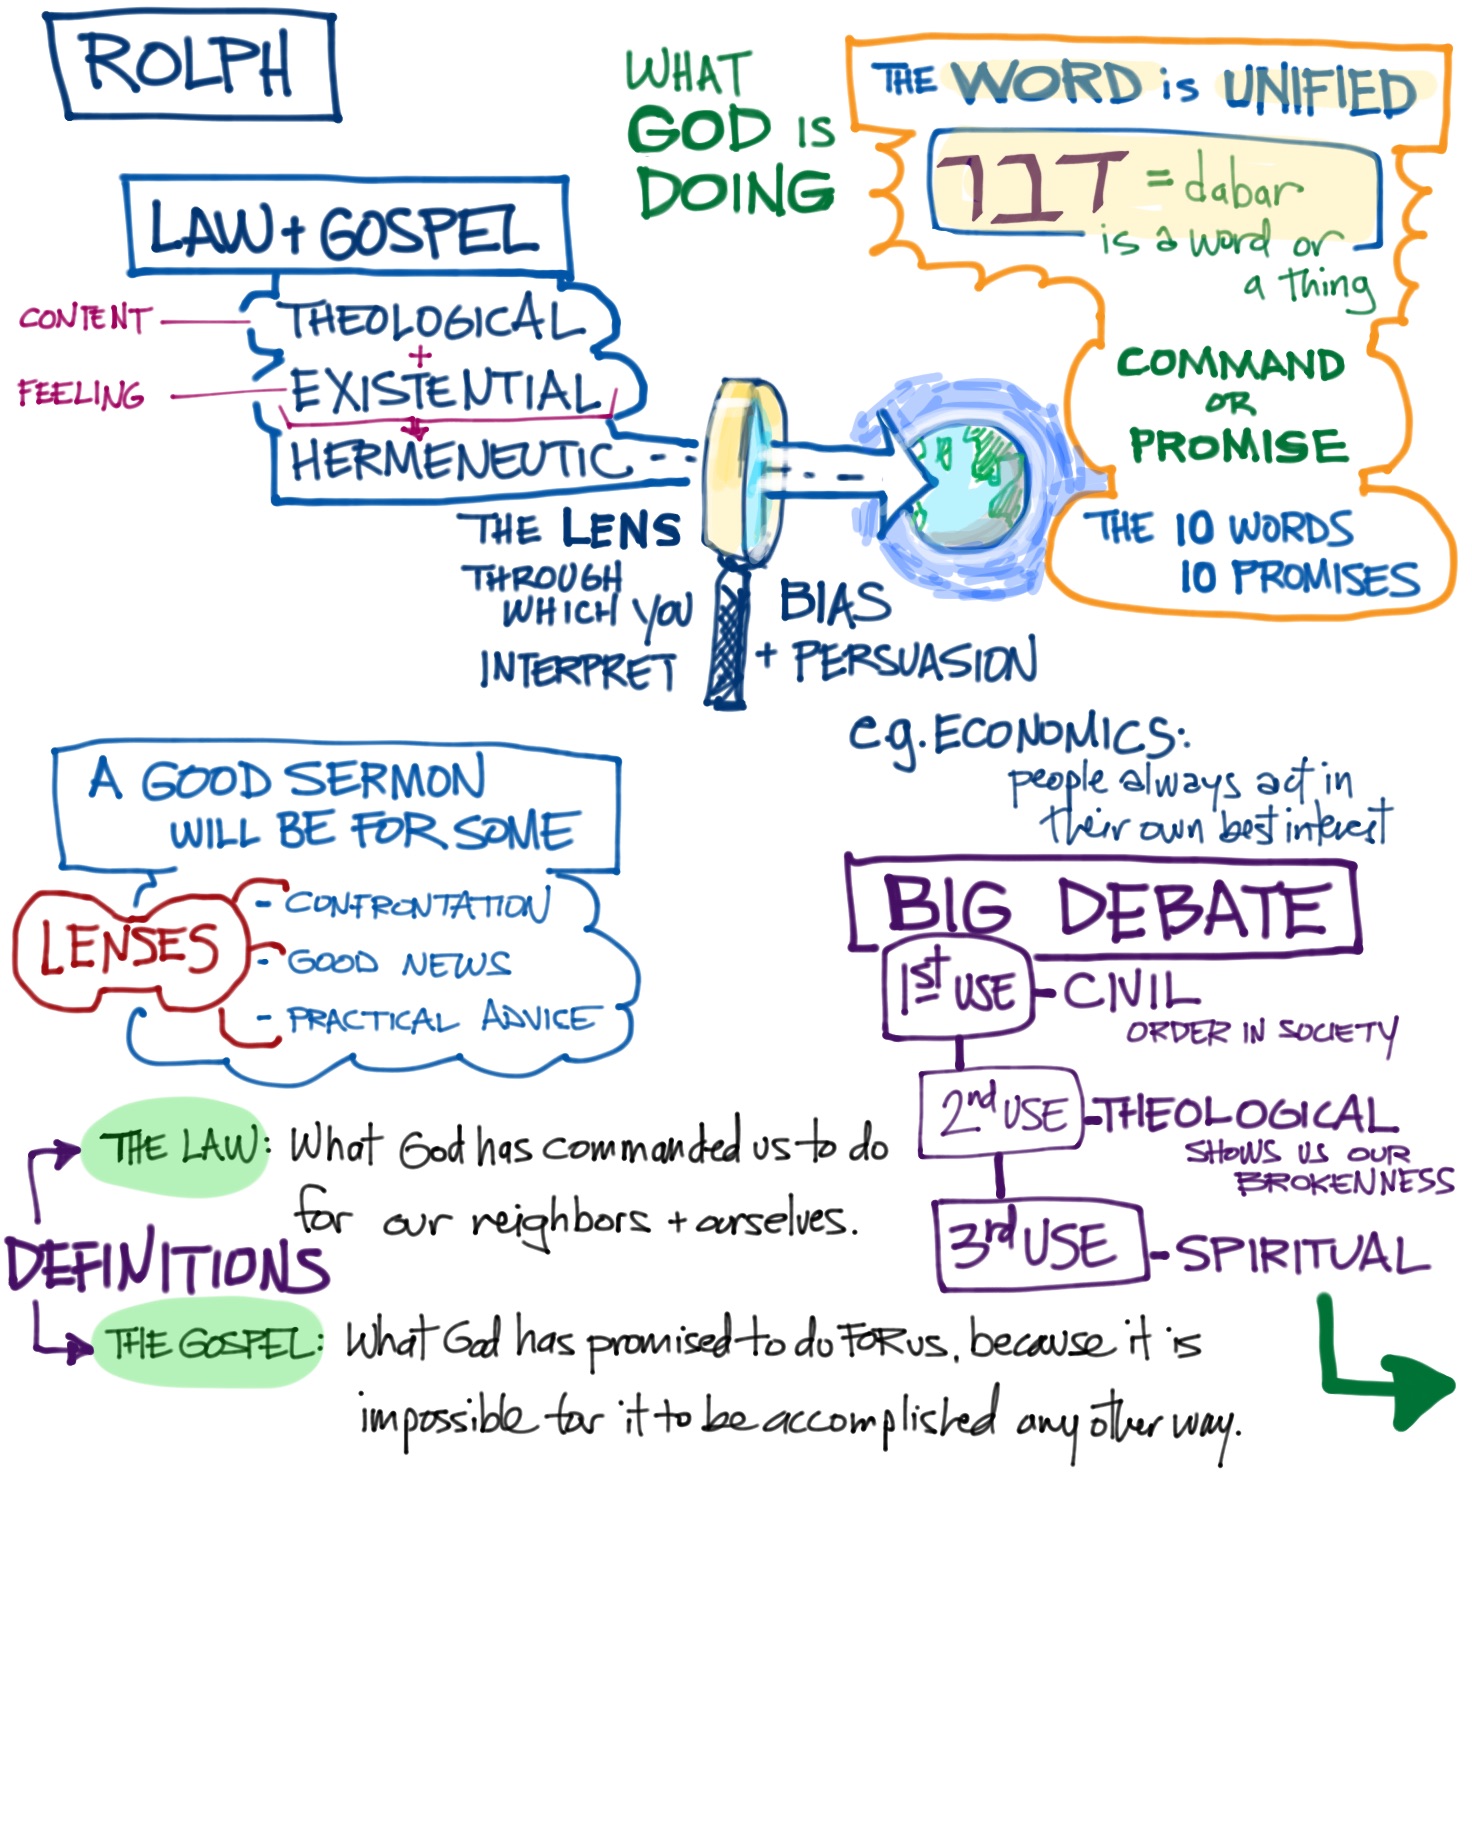 ROLPH
LAW + GOSPEL
CONTENT
THEOLOGICAL
+
FEELING
EXISTENTIAL
HERMENEUTIC
THE LENS
THROUGH
WHICH YOU
INTERPRET
BIAS
+ PERSUASION
WHAT
GOD IS
DOING
THE WORD is UNIFIED
דבר = dabar
is a word or
a thing
COMMAND
OR
PROMISE
THE 10 WORDS
10 PROMISES
e.g. ECONOMICS:
people always act in
their own best interest
A GOOD SERMON
WILL BE FOR SOME
LENSES
- CONFRONTATION
- GOOD NEWS
- PRACTICAL ADVICE
BIG DEBATE
1st USE - CIVIL
ORDER IN SOCIETY
2nd USE - THEOLOGICAL
SHOWS US OUR
BROKENNESS
3rd USE - SPIRITUAL
DEFINITIONS
THE LAW: What God has commanded us to do
for our neighbors + ourselves.
THE GOSPEL: What God has promised to do FOR us, because it is
impossible for it to be accomplished any other way.